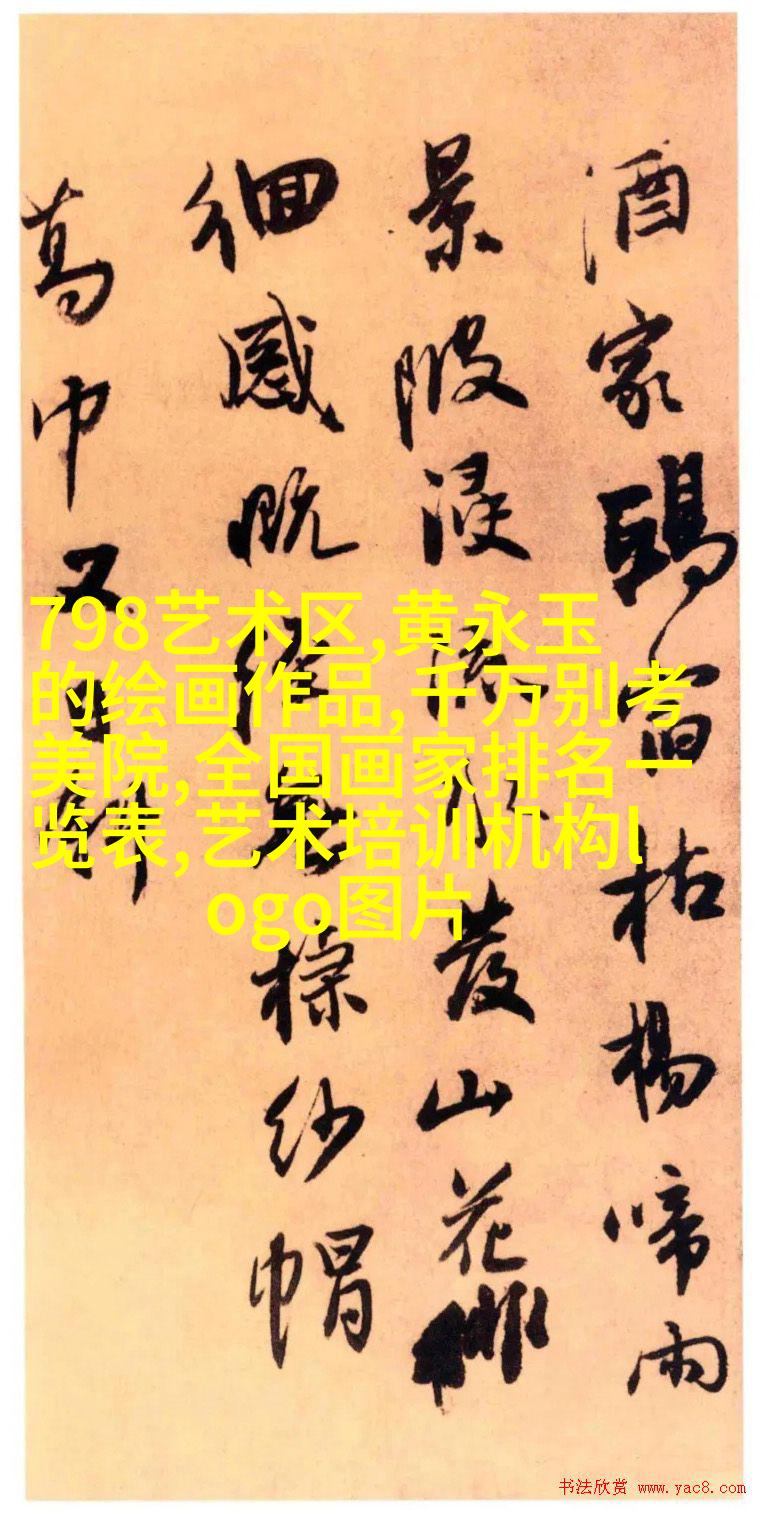 酒家枯楊啼雨
景陂浸發山花徘
徊感既棕紗帽
葛巾又
798艺术区,黄永玉
的绘画作品,千万别考
美院,全国画家排名一
览表,艺术培训机构l
ogo图片
书法欣赏 www.yac8.com